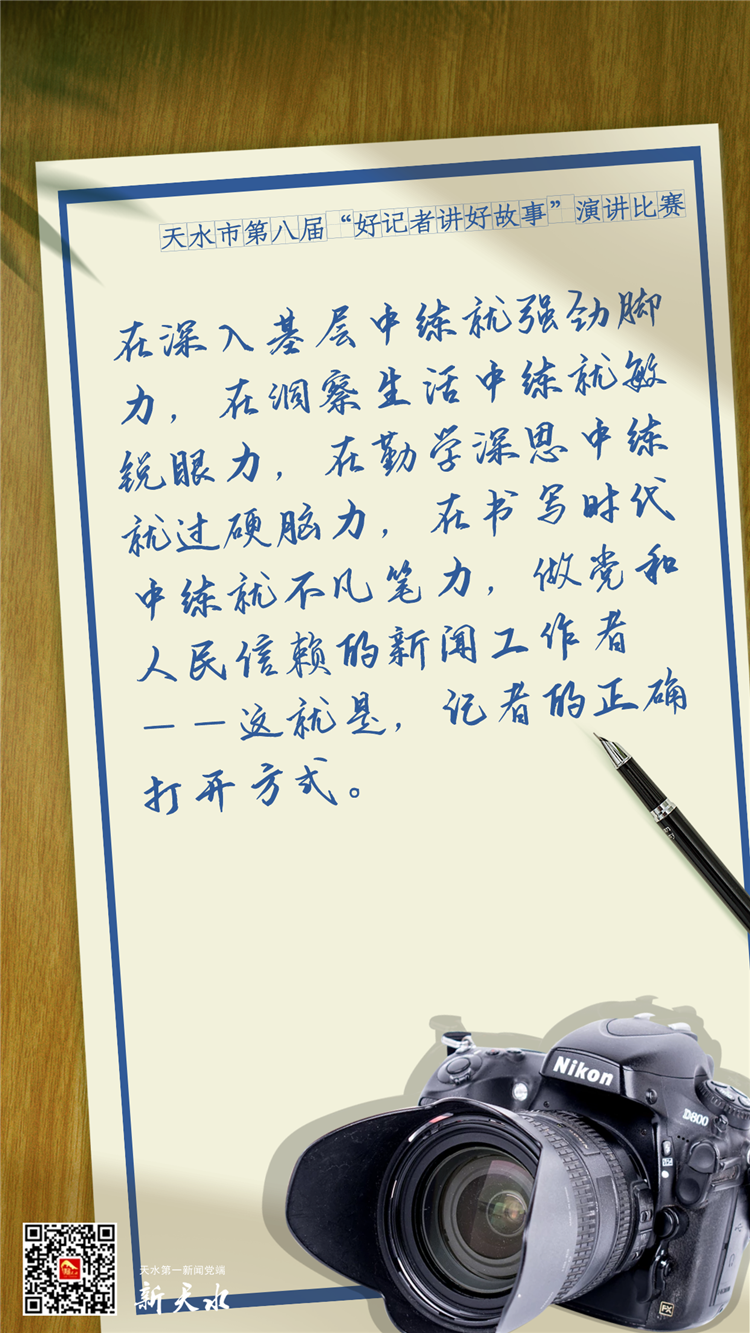 天水市第八届“好记者讲好故事”演讲比赛
在深入基层中练就强劲脚
力，在洞察生活中练就敏
锐眼力，在勤学深思中练
就过硬脑力，在书写时代
中练就不凡笔力，做党和
人民信赖的新闻工作者
——这就是，记者的正确
打开方式。
Nikon
D800
FX
天水第一新闻党端
新天水